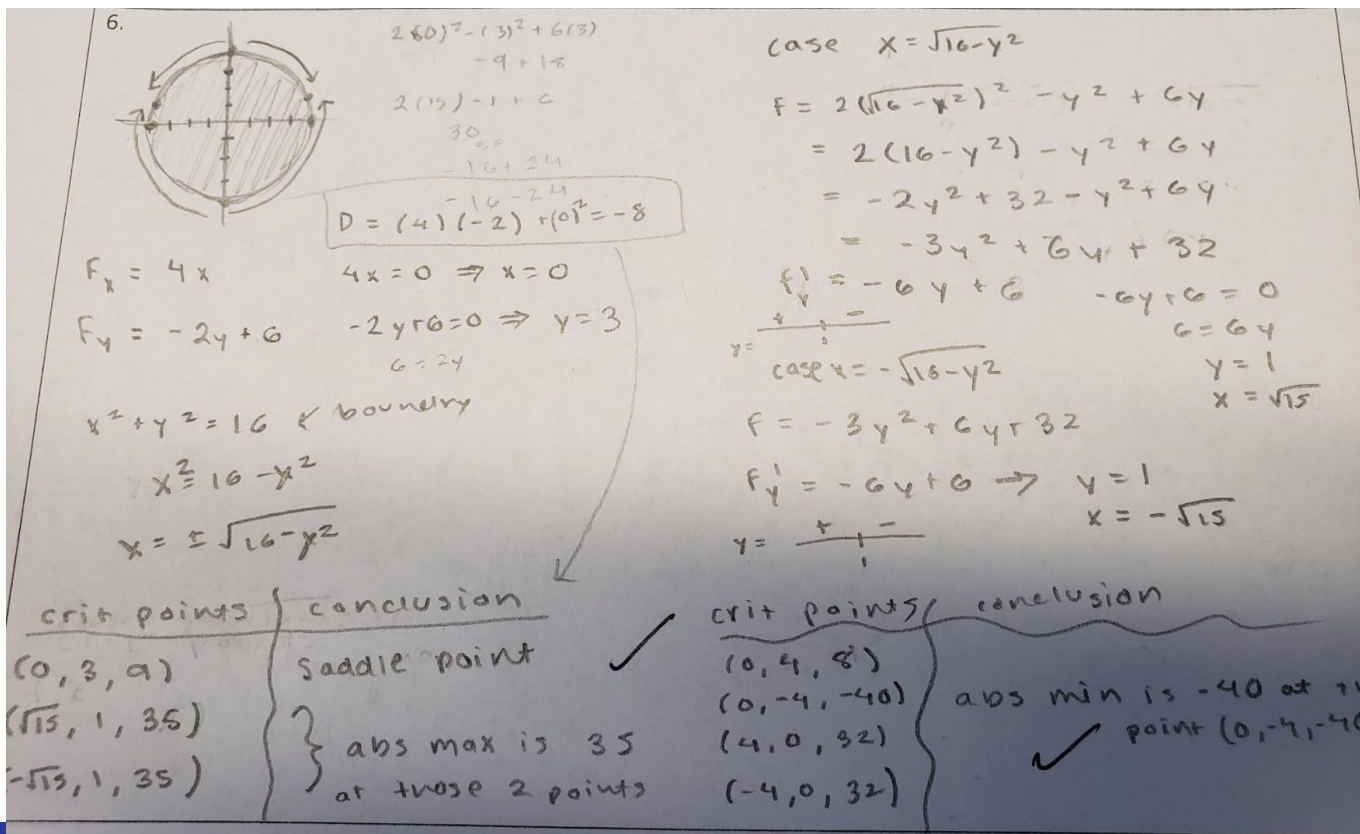 6.
2(0)² - (3)² + 6(3)
-9 + 18
2(15) - 1 + 6
30
-16 + 24
-16 - 24
D = (4)(-2) + (0)² = -8
Fx = 4x
4x = 0 ⇒ x = 0
Fy = -2y + 6
-2y + 6 = 0 ⇒ y = 3
6 = 2y
x² + y² = 16 ← boundry
x² = 16 - y²
x = ± √16 - y²
case x = √16 - y²
F = 2(√16 - y²)² - y² + 6y
= 2(16 - y²) - y² + 6y
= -2y² + 32 - y² + 6y
= -3y² + 6y + 32
f'y = -6y + 6
-6y + 6 = 0
6 = 6y
y = 1
x = √15
y = + -
1
case x = -√16 - y²
F = -3y² + 6y + 32
Fy' = -6y + 6 → y = 1
x = -√15
y = + -
1
crit points conclusion
(0, 3, 9) saddle point ✓
(√15, 1, 35)
abs max is 35
(-√15, 1, 35)
at those 2 points
crit points conclusion
(0, 4, 8)
(0, -4, -40) abs min is -40 at
(4, 0, 32) ✓ point (0, -4, -40
(-4, 0, 32)